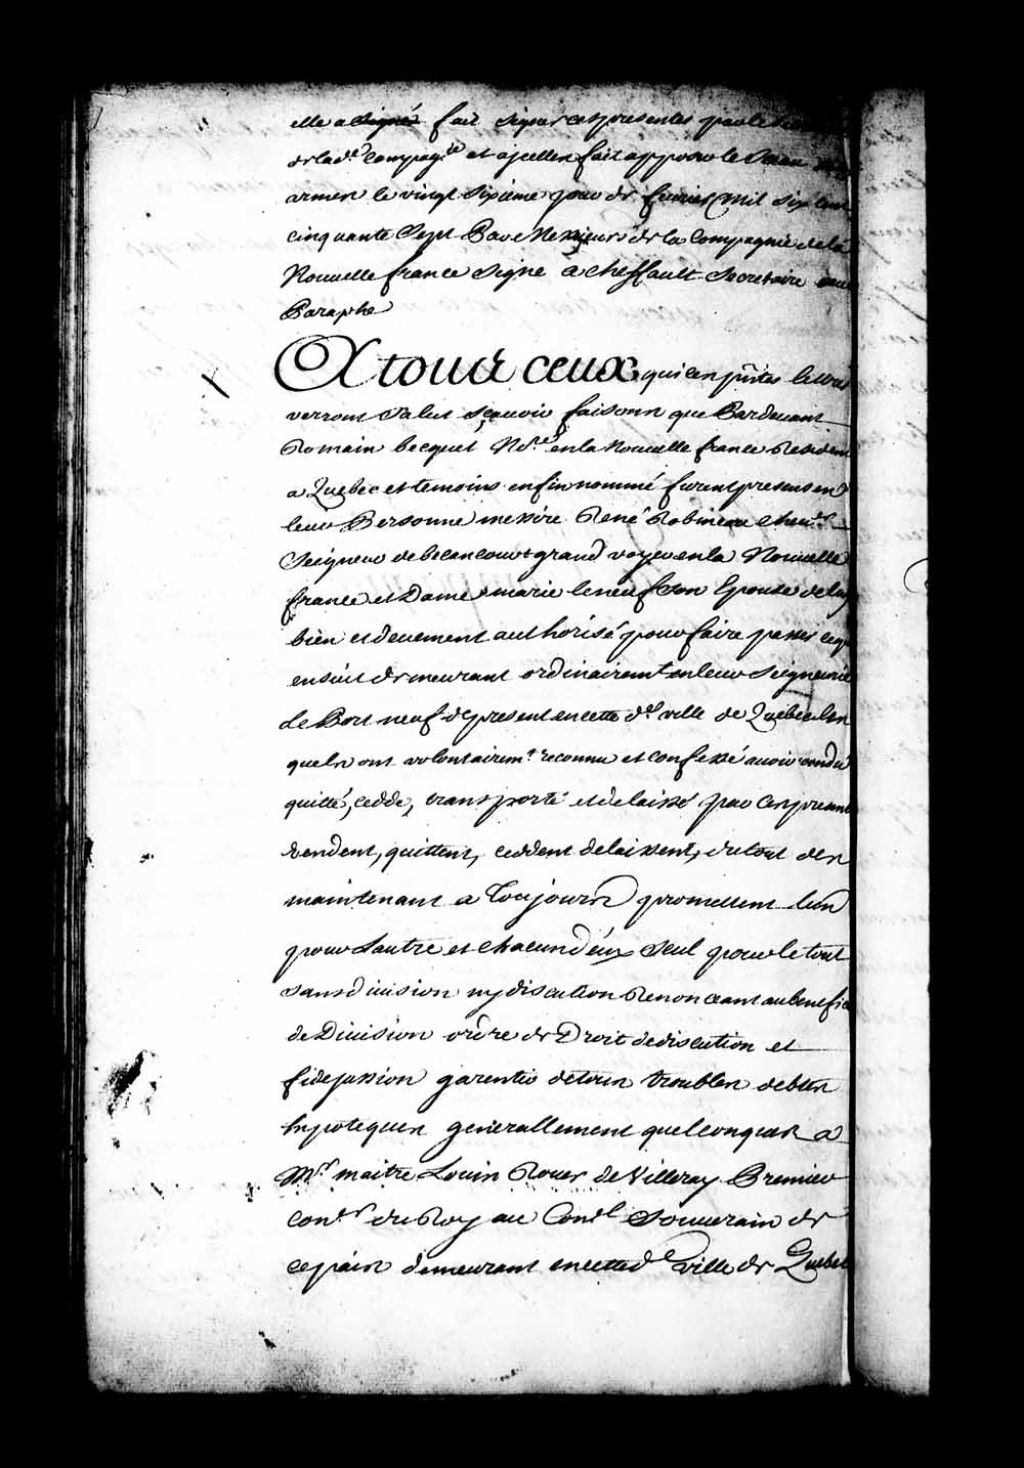 elle a signé fait signer ces presentes par le
de lad.e Compag.ie et a jcelles fait apposer le Seau
armes le vingt Sixieme jour de feuvrier mil six Cent
cinquante Sept Par Messieurs de la Compagnie de la
Nouvelle france Signé A Cheffault Secretaire
Paraphe
A tous ceux qui ces pntes lettres
verront Salut sçauoir faisons que Pardeuant
Romain becquet No.re en la Nouuelle france Resident
a Quebec et temoins enfin nommé furent presens en
leur Personne messire René Robineau Cheu.er
Seigneur de becancourt grand voyer en la Nouuelle
france et Dame marie leneuf Son Epouse de luy
bien et deuement authorisé pour faire passer ce
ensuit demeurant ordinairem.t en leur Seigneurie
de Port neuf de present en cette d.e ville de Quebec les
quels ont volontairem.t reconnu et confessé auoir vendu
quitté, ceddé, transporté et delaissé par Ces presentes
vendent, quittent, ceddent delaissent, du tout des
maintenant a Toujours promettent lun
pour Lautre et chacun d'eux Seul pour le tout
Sans diuision ny discution Renonceant au benefice
de Diuision ordre de Droit de discution et
fidejussion garentir de tous troubles debtes
hypoteques generallement quelconques a
M.r maitre Louis Rouer de Villeray Premier
con.er du Roy au Con.l Souuerain de
ce païs demeurant en cette d.e ville de Quebec